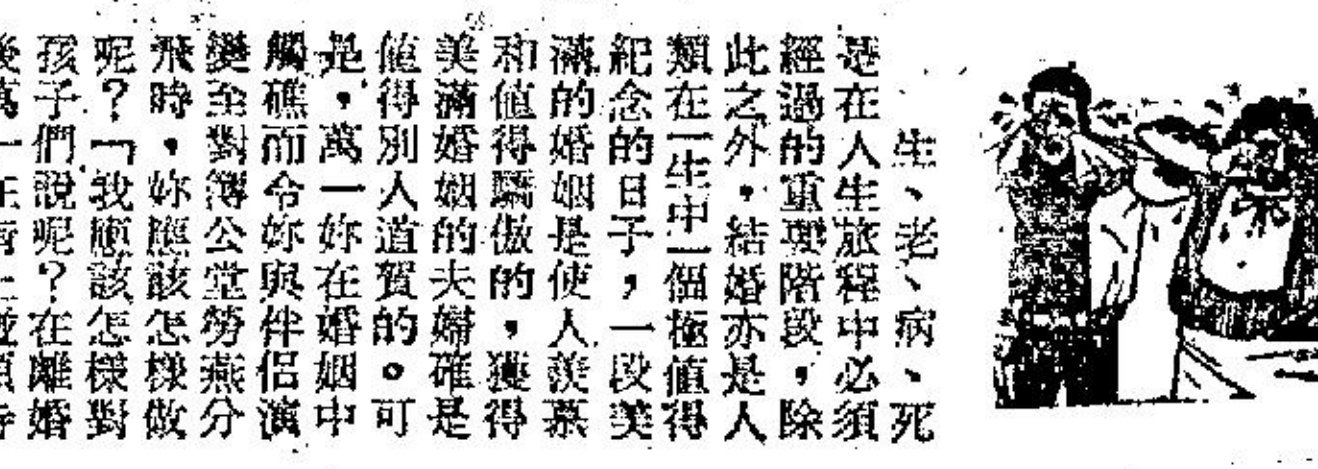 生、老、病、死
是在人生旅程中必須
經過的重要階段,除
此之外,結婚亦是人
類在一生中一個極值得
紀念的日子,一段美
滿的婚姻是使人羨慕
和值得驕傲的,獲得
美滿婚姻的夫婦確是
值得別人道賀的。可
是,萬一妳在婚姻中
觸礁而令妳與伴侶演
變至對簿公堂勞燕分
飛時,妳應該怎樣做
呢?「我應該怎樣對
孩子們說呢?在離婚